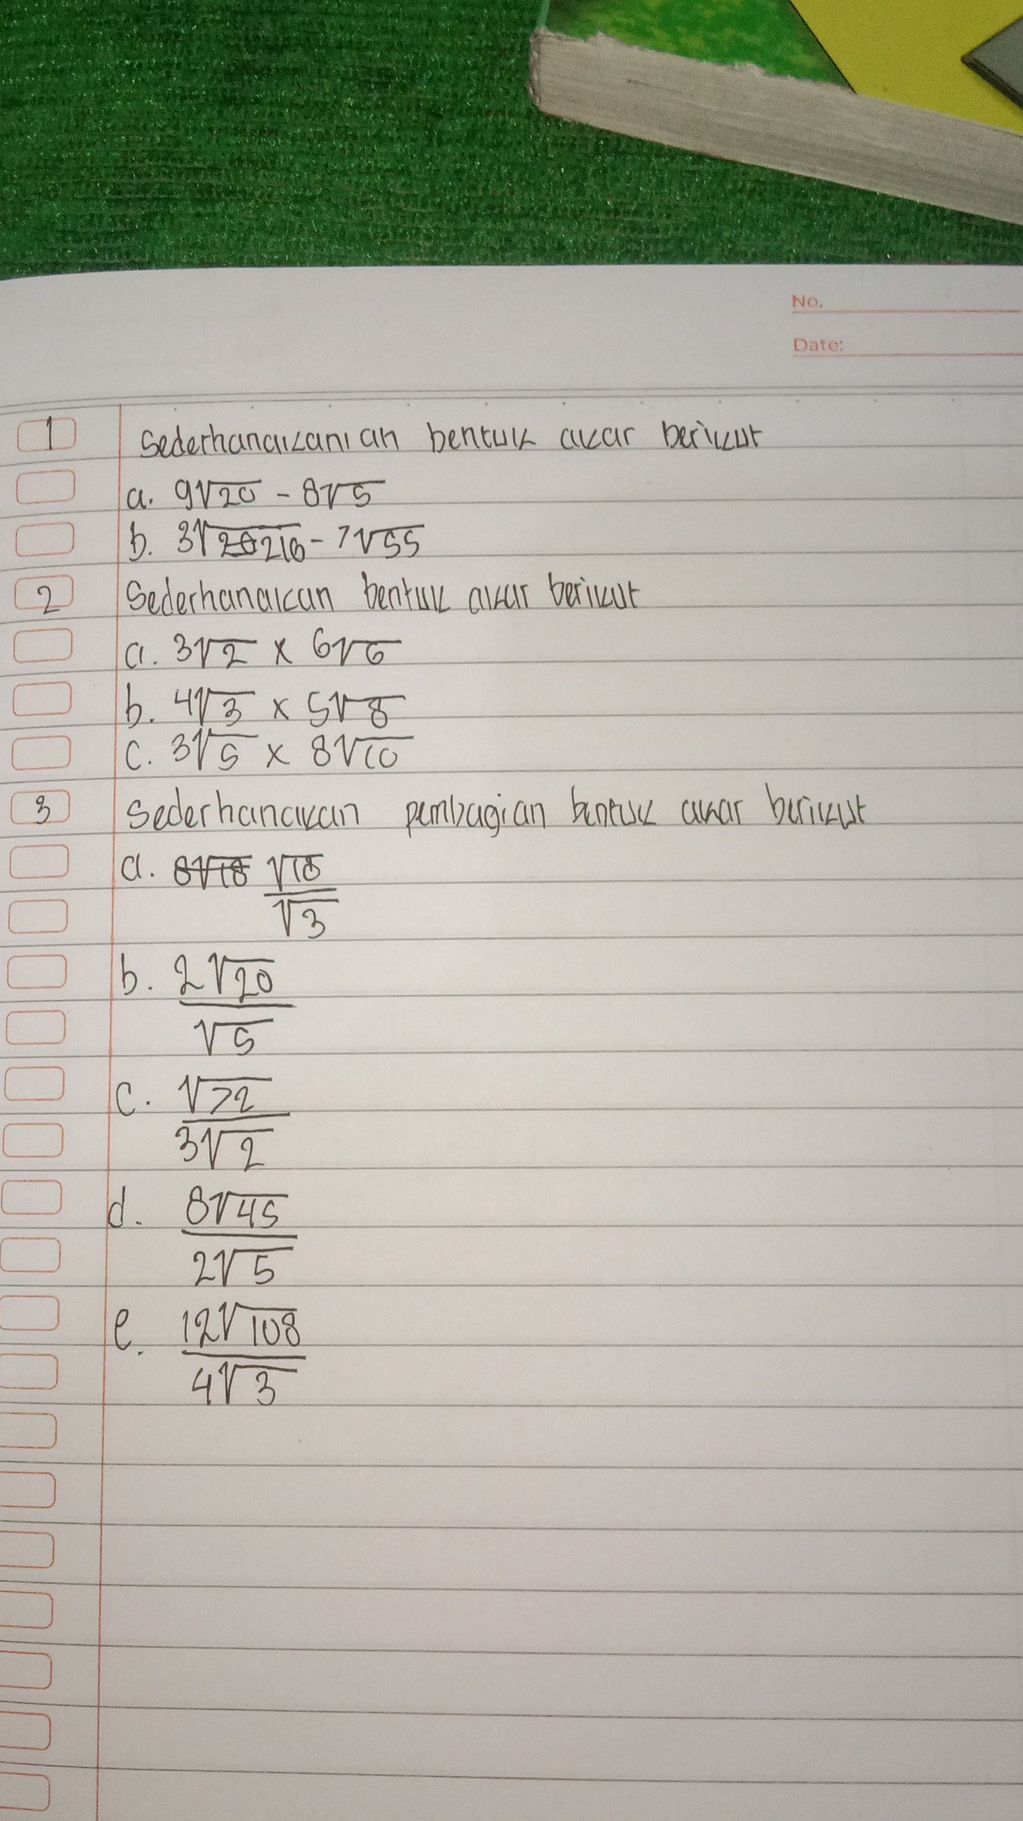 No.
Date:
1 Sederhanakanian bentuk akar berikut
a. 9√20 - 8√5
b. 3√216 - 7√55
2 Sederhanakan bentuk akar berikut
a. 3√2 x 6√6
b. 4√3 x 5√8
c. 3√5 x 8√10
3 Sederhanakan pembagian bentuk akar berikut
a. 8√18 √18
√3
b. 2√20
√5
c. √72
3√2
d. 8√45
2√5
e. 12√108
4√3